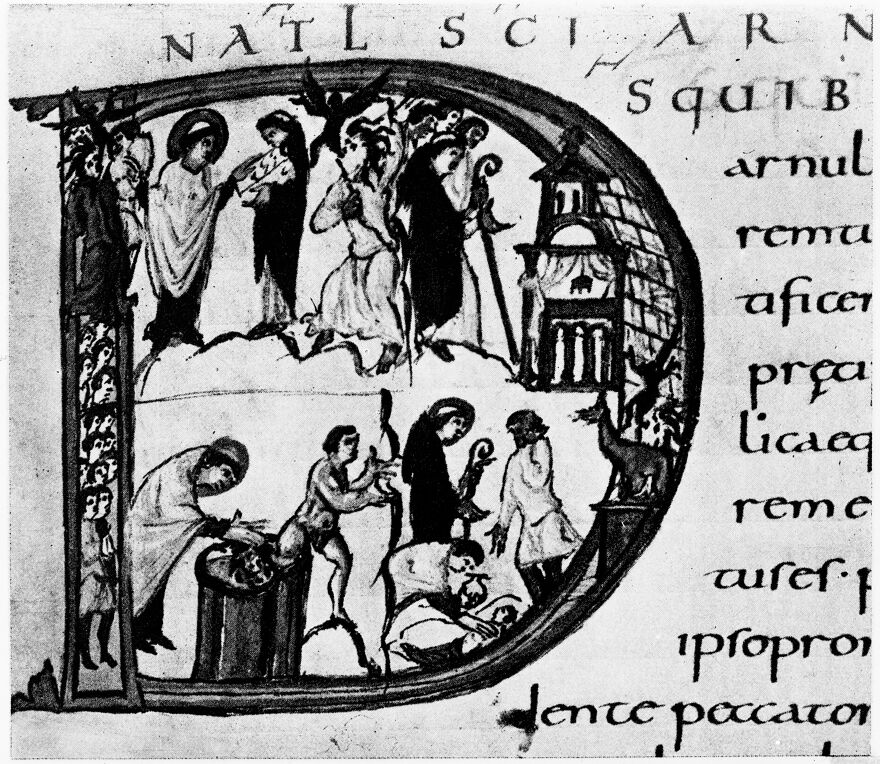 NATL SCI ARN
SQUIB
arnul
remu
tificer
pręci
licaeq
rem e
tuſeſ· p
ipſopron
dente peccator